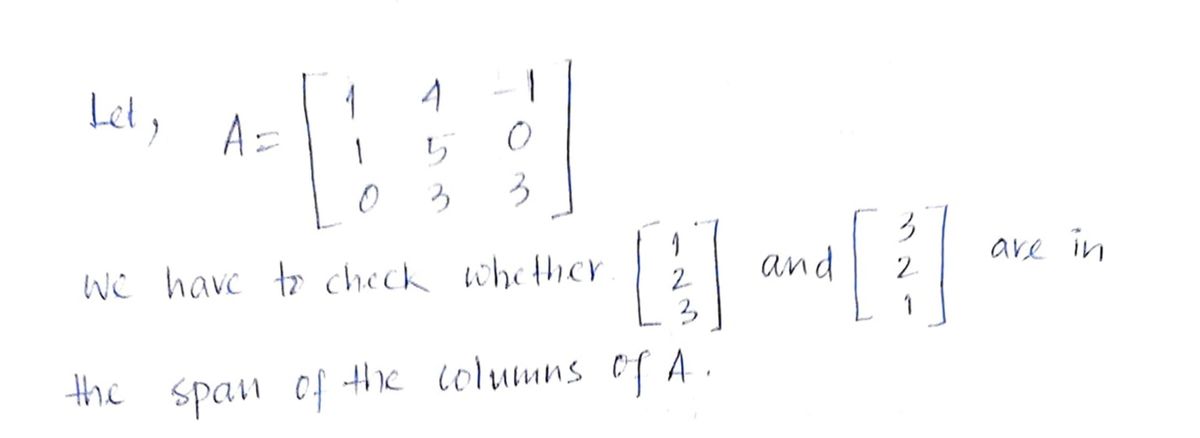 Let, A = [ 1 4 -1
1 5 0
0 3 3 ]
We have to check whether [ 1 2 3 ] and [ 3 2 1 ] are in
the span of the columns of A.